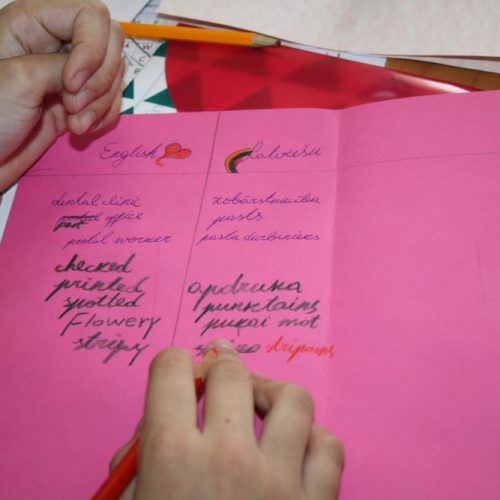 English Latviešu
dental clinic zobārstniecība
post office pasts
postal worker pasta darbinieks
checked
printed apdruka
spotted punktains
Flowery puķai mot
stripy stripains